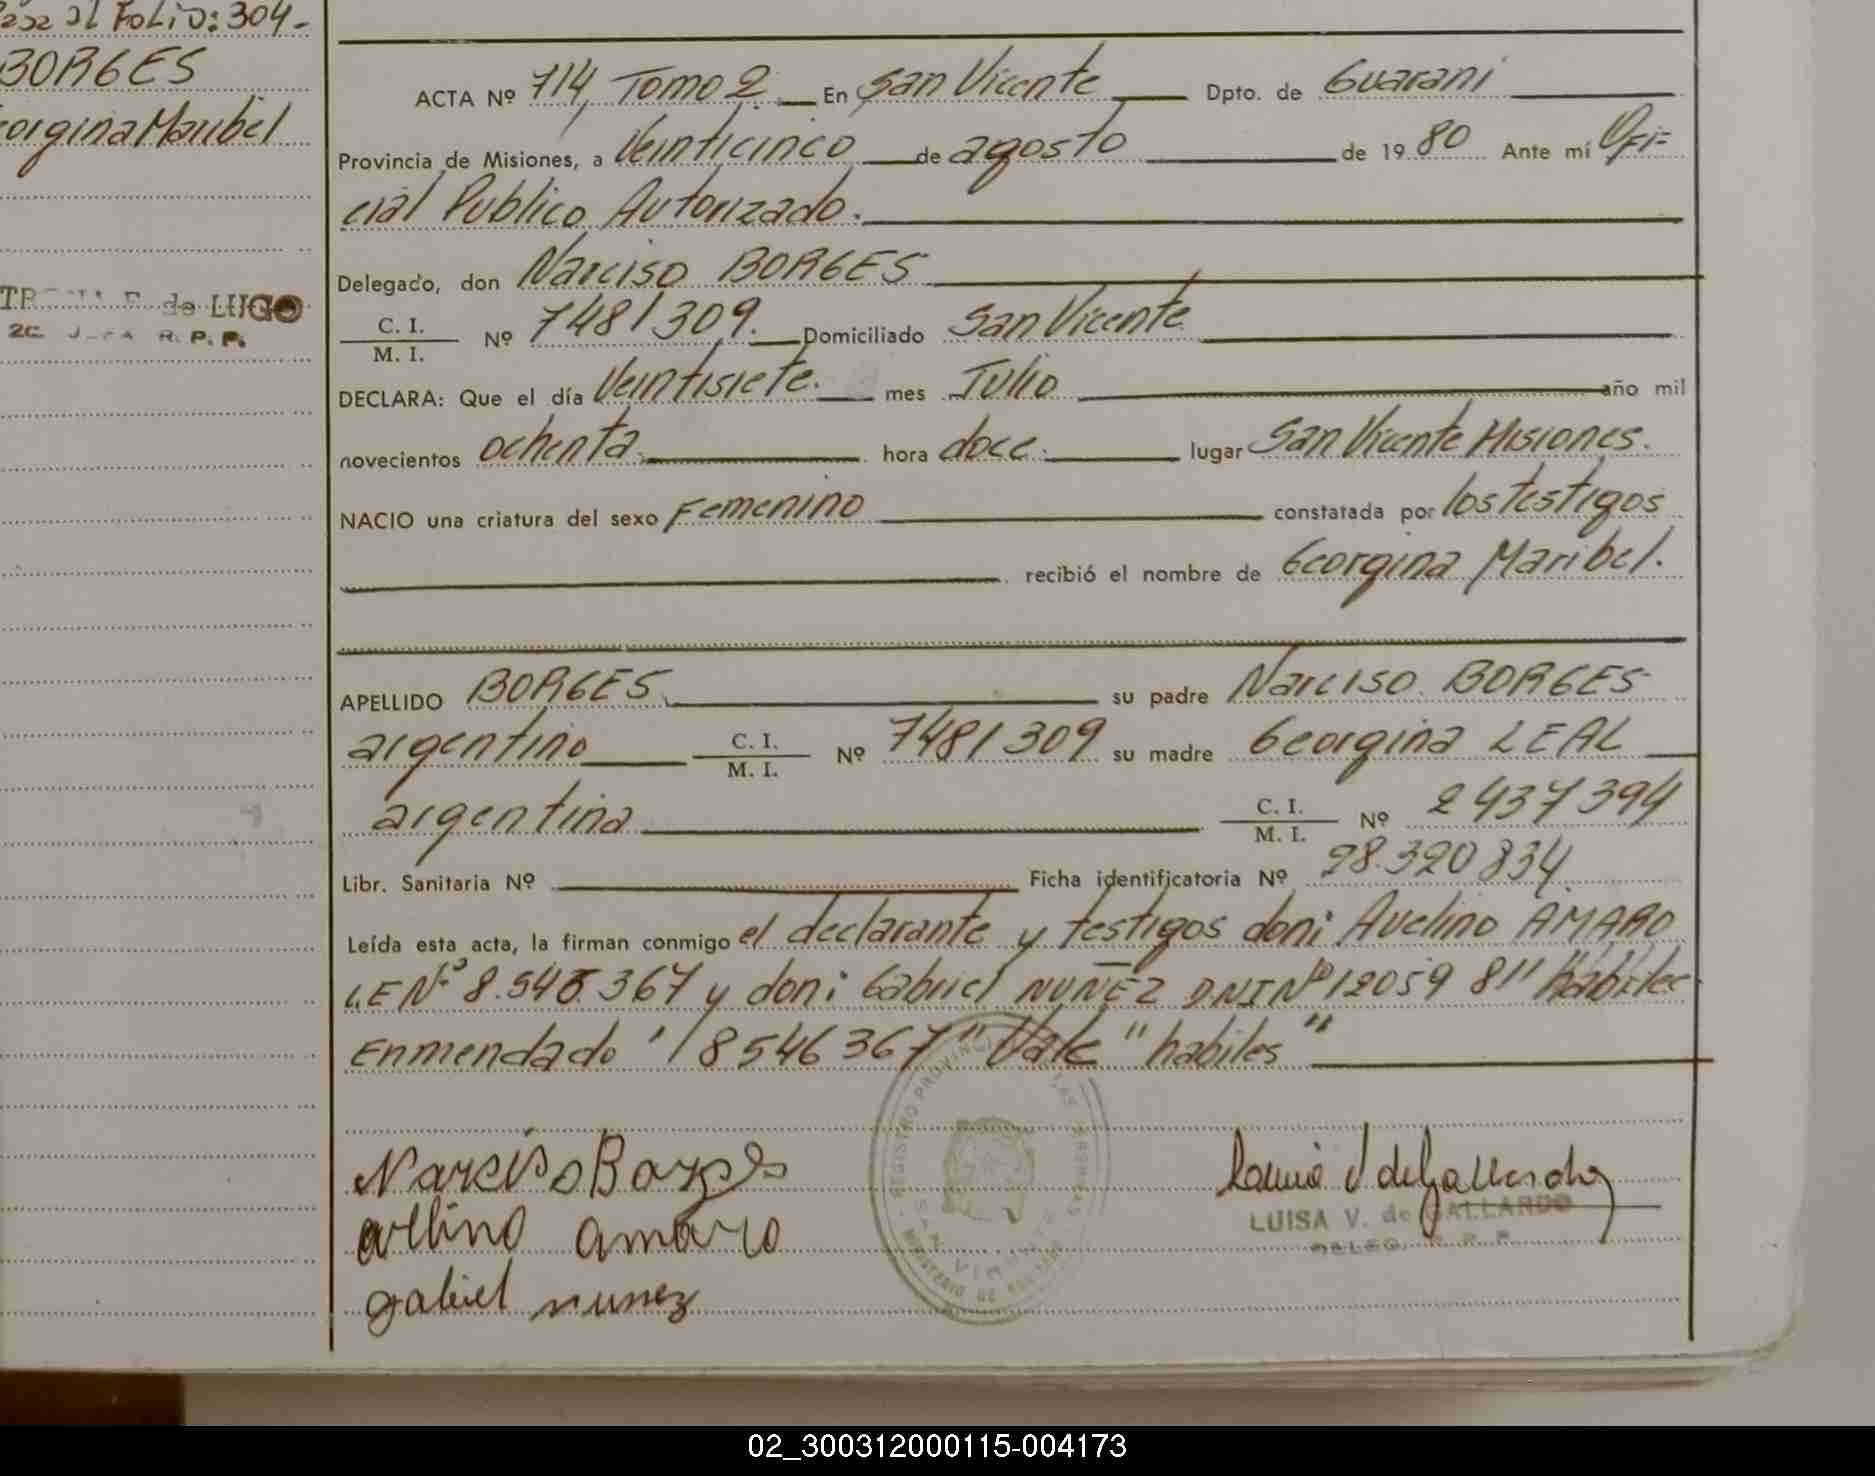 Pasa al Folio: 304-
BORGES
Georgina Maribel
de LUGO
R. P. P.
ACTA Nº 714, Tomo 2. En San Vicente Dpto. de Guarani
Provincia de Misiones, a Veinticinco de agosto de 1980 Ante mí Ofi=
cial Publico Autorizado.
Delegado, don Narciso BORGES
C. I. / M. I. Nº 7481309. Domiciliado San Vicente
DECLARA: Que el día Veintisiete. mes Julio año mil
novecientos ochenta. hora doce. lugar San Vicente Misiones.
NACIO una criatura del sexo Femenino constatada por los testigos
recibió el nombre de Georgina Maribel.
APELLIDO BORGES su padre Narciso BORGES
argentino C. I. / M. I. Nº 7481309 su madre Georgina LEAL
argentina C. I. / M. I. Nº 2437394
Libr. Sanitaria Nº Ficha identificatoria Nº 28.320834.
Leída esta acta, la firman conmigo el declarante y testigos don: Avelino AMARO
L.E Nº 8.546.367 y don: Gabriel NUÑEZ DNI Nº 12059 811 "habiles
Enmendado "8546367" Vale "habiles"
Narciso Borges
avelino amaro
gabriel nunez
LUISA V. de GALLARDO
DELEG. R. P. P.
REGISTRO PROVINCIAL DE LAS PERSONAS
MINISTERIO DE GOBIERNO
SAN VICENTE
02_300312000115-004173